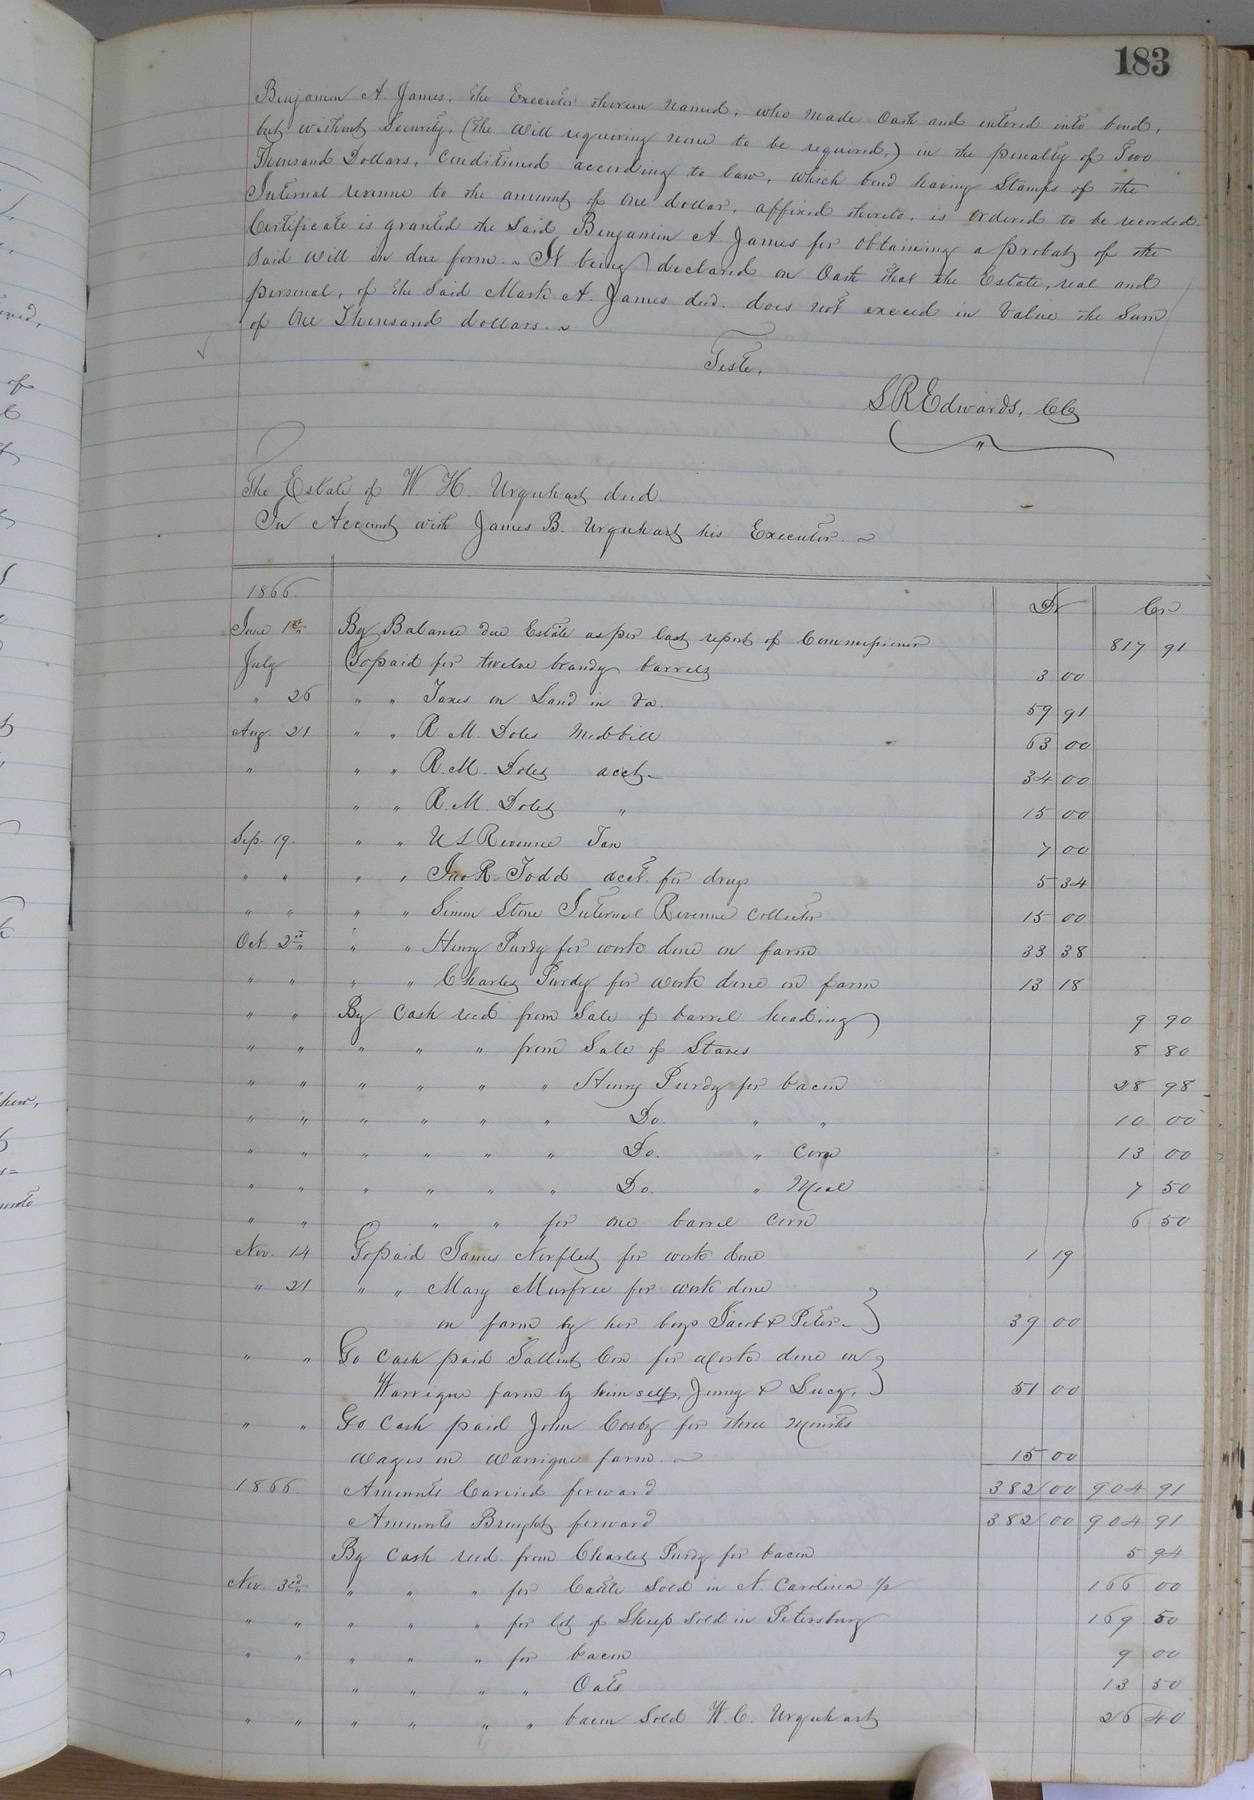 183
Benjamin A James, the Executor therein named, who made Oath and entered into bond,
but without Security, (the Will requiring none to be required,) in the penalty of Two
Thousand Dollars, Conditioned according to law, which bond having Stamps of the
Internal revenue to the amount of one dollar, affixed thereto, is ordered to be recorded.
Certificate is granted the Said Benjamin A James for obtaining a probat of the
Said Will in due form. ~ It being declared on Oath that the Estate, real and
personal, of the Said Mark A. James decd. does not exceed in Value the Sum
of One Thousand dollars. ~
Teste,
S R Edwards, CC
The Estate of W H. Urquhart decd.
In Account with James B. Urquhart his Executor. ~
1866. Dr Cr
June 1st By Balance due Estate as per last report of Commissioner 817 91
July To paid for twelve brandy barrels 3 00
" 26 " " Taxes on Land in Va. 59 91
Aug. 21 " " R. M. Doles Med bill 63 00
" " " R. M. Doles acct. 34 00
" " R. M. Doles " 15 00
Sep. 19. " " U S Revenue Tax 7 00
" " " " Jno R. Todd acct. for drugs 5 34
" " " " Simon Stone Internal Revenue Collector 15 00
Oct. 2nd " " Henry Purdy for work done on farm 33 38
" " " " Charles Purdy for work done on farm 13 18
" " By Cash recd from Sale of barrel heading 9 90
" " " " " from Sale of Staves 8 80
" " " " " " Henry Purdy for bacon 28 98
" " " " " " Do. " " 10 00
" " " " " " Do. " Corn 13 00
" " " " " " Do. " Meal 7 50
" " " " " for one barrel corn 6 50
Nov. 14 To paid James Norfleet for work done 1 19
" 21 " " Mary Murfree for work done
on farm by her boys Jacob & Peter 39 00
" " To Cash paid Cox for work done on
Warrique farm by himself, Jenny & Lucy, 51 00
" " To Cash paid John Cosby for three months
wages on Warrique farm. ~ 15 00
1866. Amounts Carried forward 382 00 904 91
Amounts Brought forward 382 00 904 91
By Cash recd. from Charles Purdy for bacon 5 94
Nov. 3rd " " " for Cattle Sold in N. Carolina 1/2 166 00
" " " " " for lot of Sheep Sold in Petersburg 169 50
" " " " " for bacon 9 00
" " " " Oats 13 50
" " " " " " bacon Sold W. C. Urquhart 26 40